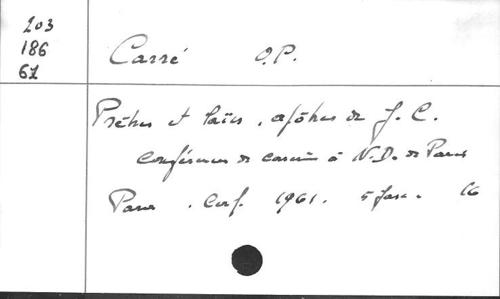 203
186
61
Carré O.P.
Prêtres et laïcs, apôtres de J. C.
Conférences de carême à N.D. de Paris
Paris. Cerf. 1961. 5 fasc. 16